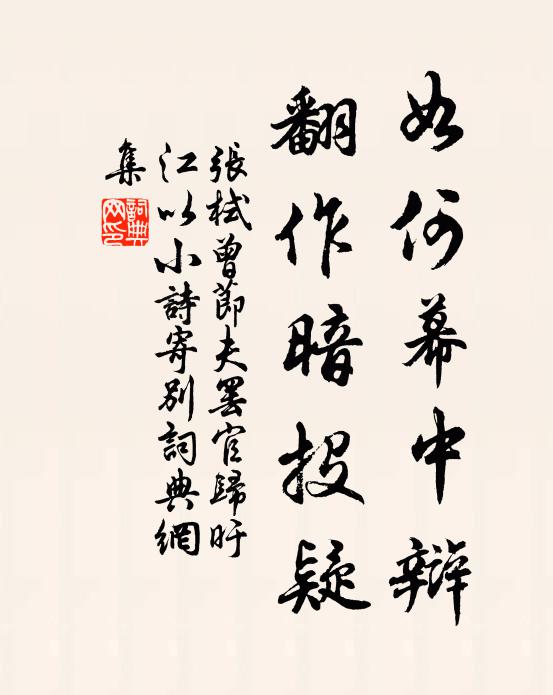 如何幕中辯
翻作暗投疑
張栻曾節夫罷官歸盱
江以小詩寄別詞典網
集
詞典網印